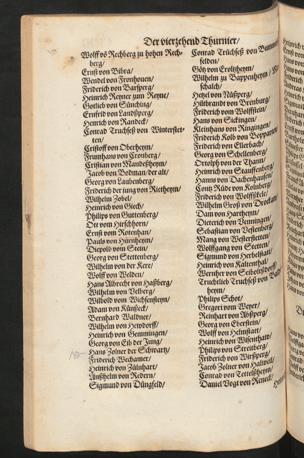 Der vierzehend Thurnier/
Wolff vō Rechberg zu hohen Rech-
berg/
Ernst von Bibra/
Wendel von Fronhouen/
Friderich von Barsperg/
Heinrich Reyner zum Reyne/
Gotlieb von Sünching/
Ernfrid von Landsperg/
Heinrich von Randeck/
Conrad Truchseß von Winterstet-
ten/
Cristoff von Oberheym/
Frumhans von Cronberg/
Cristian von Mandelßheym/
Jacob von Bodman/der alt/
Georg von Laubenberg/
Friderich der jung von Rietheym/
Wilhelm Zobel/
Heinrich von Giech/
Philips von Guttenberg/
Ott vom Hirschhorn/
Ernst von Rotenhan/
Pauls von Hürnheym/
Diepold vom Stein/
Georg von Stettenberg/
Wilhelm von der Kere/
Wolff von Welden/
Hans Albrecht von Haßberg/
Wilhelm von Velberg/
Wilbold von Wichsensteyn/
Adam von Künßeck/
Bernhard Waldner/
Wilhelm von Hewdorff/
Heinrich von Gemmingen/
Georg von Eib der Jung/
Hans Zolner der Schwartz/
Friderich Wechamer/
Heinrich von Zülnhart/
Linßhelm von Redern/
Sigmund von Düngfeld/
Conrad Truchseß von
felden/
Götz von Erolzheym/
Wilhelm zu Bappenheym/
schalch/
Hetzel von Nüsperg/
Hiltbrandt von Brenburg/
Friderich von Wolffstein/
Hans von Sickingen/
Kleinhans von Küngingen/
Friderich Kolb von Boppart
Friderich von Ellerbach/
Georg von Schellenberg/
Ortolph von der Thann/
Heinrich von Stauffenberg/
Hanns von Dachenhausen/
Contz Rüde von Kolnberg/
Friderich von Wolffsfeld/
Wilhelm Groß von
Dam von Hartheym/
Dieterich von Venningen/
Sebastian von Vestenberg/
Mang von Westerstetten/
Wolffgang von Stetten/
Sigmund von Herbelstat/
Heinrich von Kaltenthal/
Wernher von Seiboltsdorff
Truchtlieb Truchseß von
heym/
Philips Schot/
Gregori vom Weyer/
Reinhart von Absperg/
Georg von Eberstein/
Wolff von Helmstatt/
Heinrich von Wisenthaw/
Philips von Streitberg/
Friderich von Wirsperg/
Jacob Zolner von Halburg
Conrad von Tettelßheym/
Daniel Vogt von Reineck/